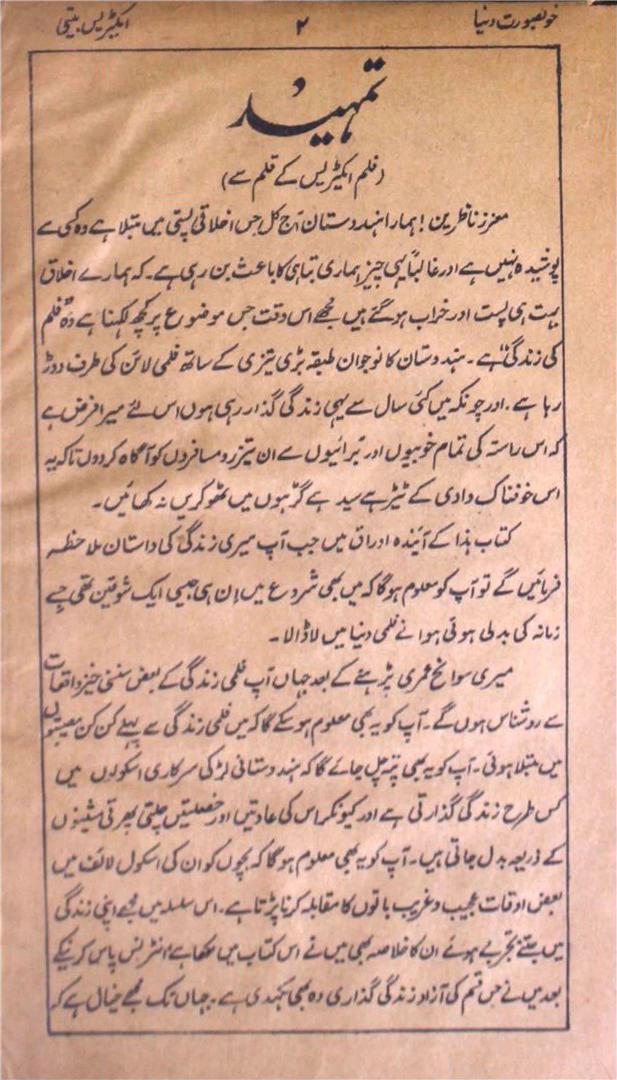 خوبصورت دنیا ۲ ایکٹریس بیتی
تمہید
(فلم ایکٹریس کے قلم سے)
معزز ناظرین! ہمارا ہندوستان آج کل جس اخلاقی پستی میں مبتلا ہے وہ کسی سے
پوشیدہ نہیں ہے اور غالباً یہی چیز ہماری تباہی کا باعث بن رہی ہے۔ کہ ہمارے اخلاق
بہت ہی پست اور خراب ہو گئے ہیں مجھے اس وقت جس موضوع پر کچھ لکھنا ہے وہ "فلم
کی زندگی" ہے۔ ہندوستان کا نوجوان طبقہ بڑی تیزی کے ساتھ فلمی لائن کی طرف دوڑ
رہا ہے۔ اور چونکہ میں کئی سال سے یہی زندگی گذار رہی ہوں اس لئے میرا فرض ہے
کہ اس راستہ کی تمام خوبیوں اور برائیوں سے ان تیز رو مسافروں کو آگاہ کر دوں تاکہ یہ
اس خوفناک وادی کے ٹیڑھے سیدھے گڑھوں میں ٹھوکریں نہ کھائیں۔
کتاب ہذا کے آئندہ اوراق میں جب آپ میری زندگی کی داستان ملاحظہ
فرمائیں گے تو آپ کو معلوم ہوگا کہ میں بھی شروع میں ان ہی جیسی ایک شوقین تھی جسے
زمانہ کی بدلی ہوئی ہوا نے فلمی دنیا میں لا ڈالا۔
میری سوانح عمری پڑھنے کے بعد جہاں آپ فلمی زندگی کے بعض سنسنی خیز واقعات
سے روشناس ہوں گے۔ آپ کو یہ بھی معلوم ہو سکے گا کہ میں فلمی زندگی سے پہلے کن کن مصیبتوں
میں مبتلا ہوئی۔ آپ کو یہ بھی پتہ چل جائے گا کہ ہندوستانی لڑکی سرکاری اسکولوں میں
کس طرح زندگی گذارتی ہے اور کیونکر اس کی عادتیں اور خصلتیں چلتی پھرتی مشینوں
کے ذریعہ بدل جاتی ہیں۔ آپ کو یہ بھی معلوم ہوگا کہ بچوں کو ان کی اسکول لائف میں
بعض اوقات عجیب و غریب باتوں کا مقابلہ کرنا پڑتا ہے۔ اس سلسلہ میں مجھے اپنی زندگی
میں جتنے تجربے ہوئے ان کا خلاصہ بھی میں نے اس کتاب میں لکھا ہے انٹرنس پاس کرنیکے
بعد میں نے جس قسم کی آزاد زندگی گذاری وہ بھی کہدی ہے۔ جہاں تک مجھے خیال ہے کہ